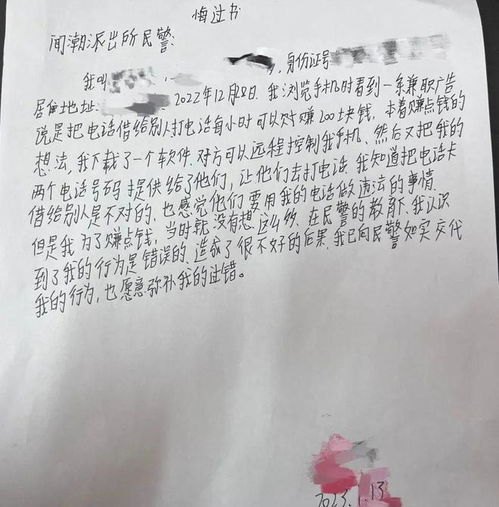 悔过书
闻潮派出所民警
我叫 身份证号
居住地址: 2022年12月28日.我浏览手机时看到一条兼职广告
说是把电话借给别人打电话每小时可以赚200块钱.本着赚点钱的
想法.我下载了一个软件.对方可以远程控制我手机.然后又把我的
两个电话号码提供给了他们,让他们去打电话.我知道把电话卡
借给别人是不对的.也感觉他们要用我的电话做违法的事情.
但是我为了赚点钱,当时就没有想这么多.在民警的教育下,我认识
到了我的行为是错误的.造成了很不好的后果.我已向民警如实交代
我的行为,也愿意弥补我的过错.
2023.1.13